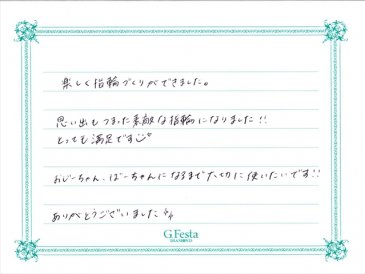 楽しく指輪づくりができました。
思い出もつまった素敵な指輪になりました!!
とっても満足です
おじーちゃん、ばーちゃんになるまで大切に使いたいです!!
ありがとうございました
G.Festa
DIAMOND